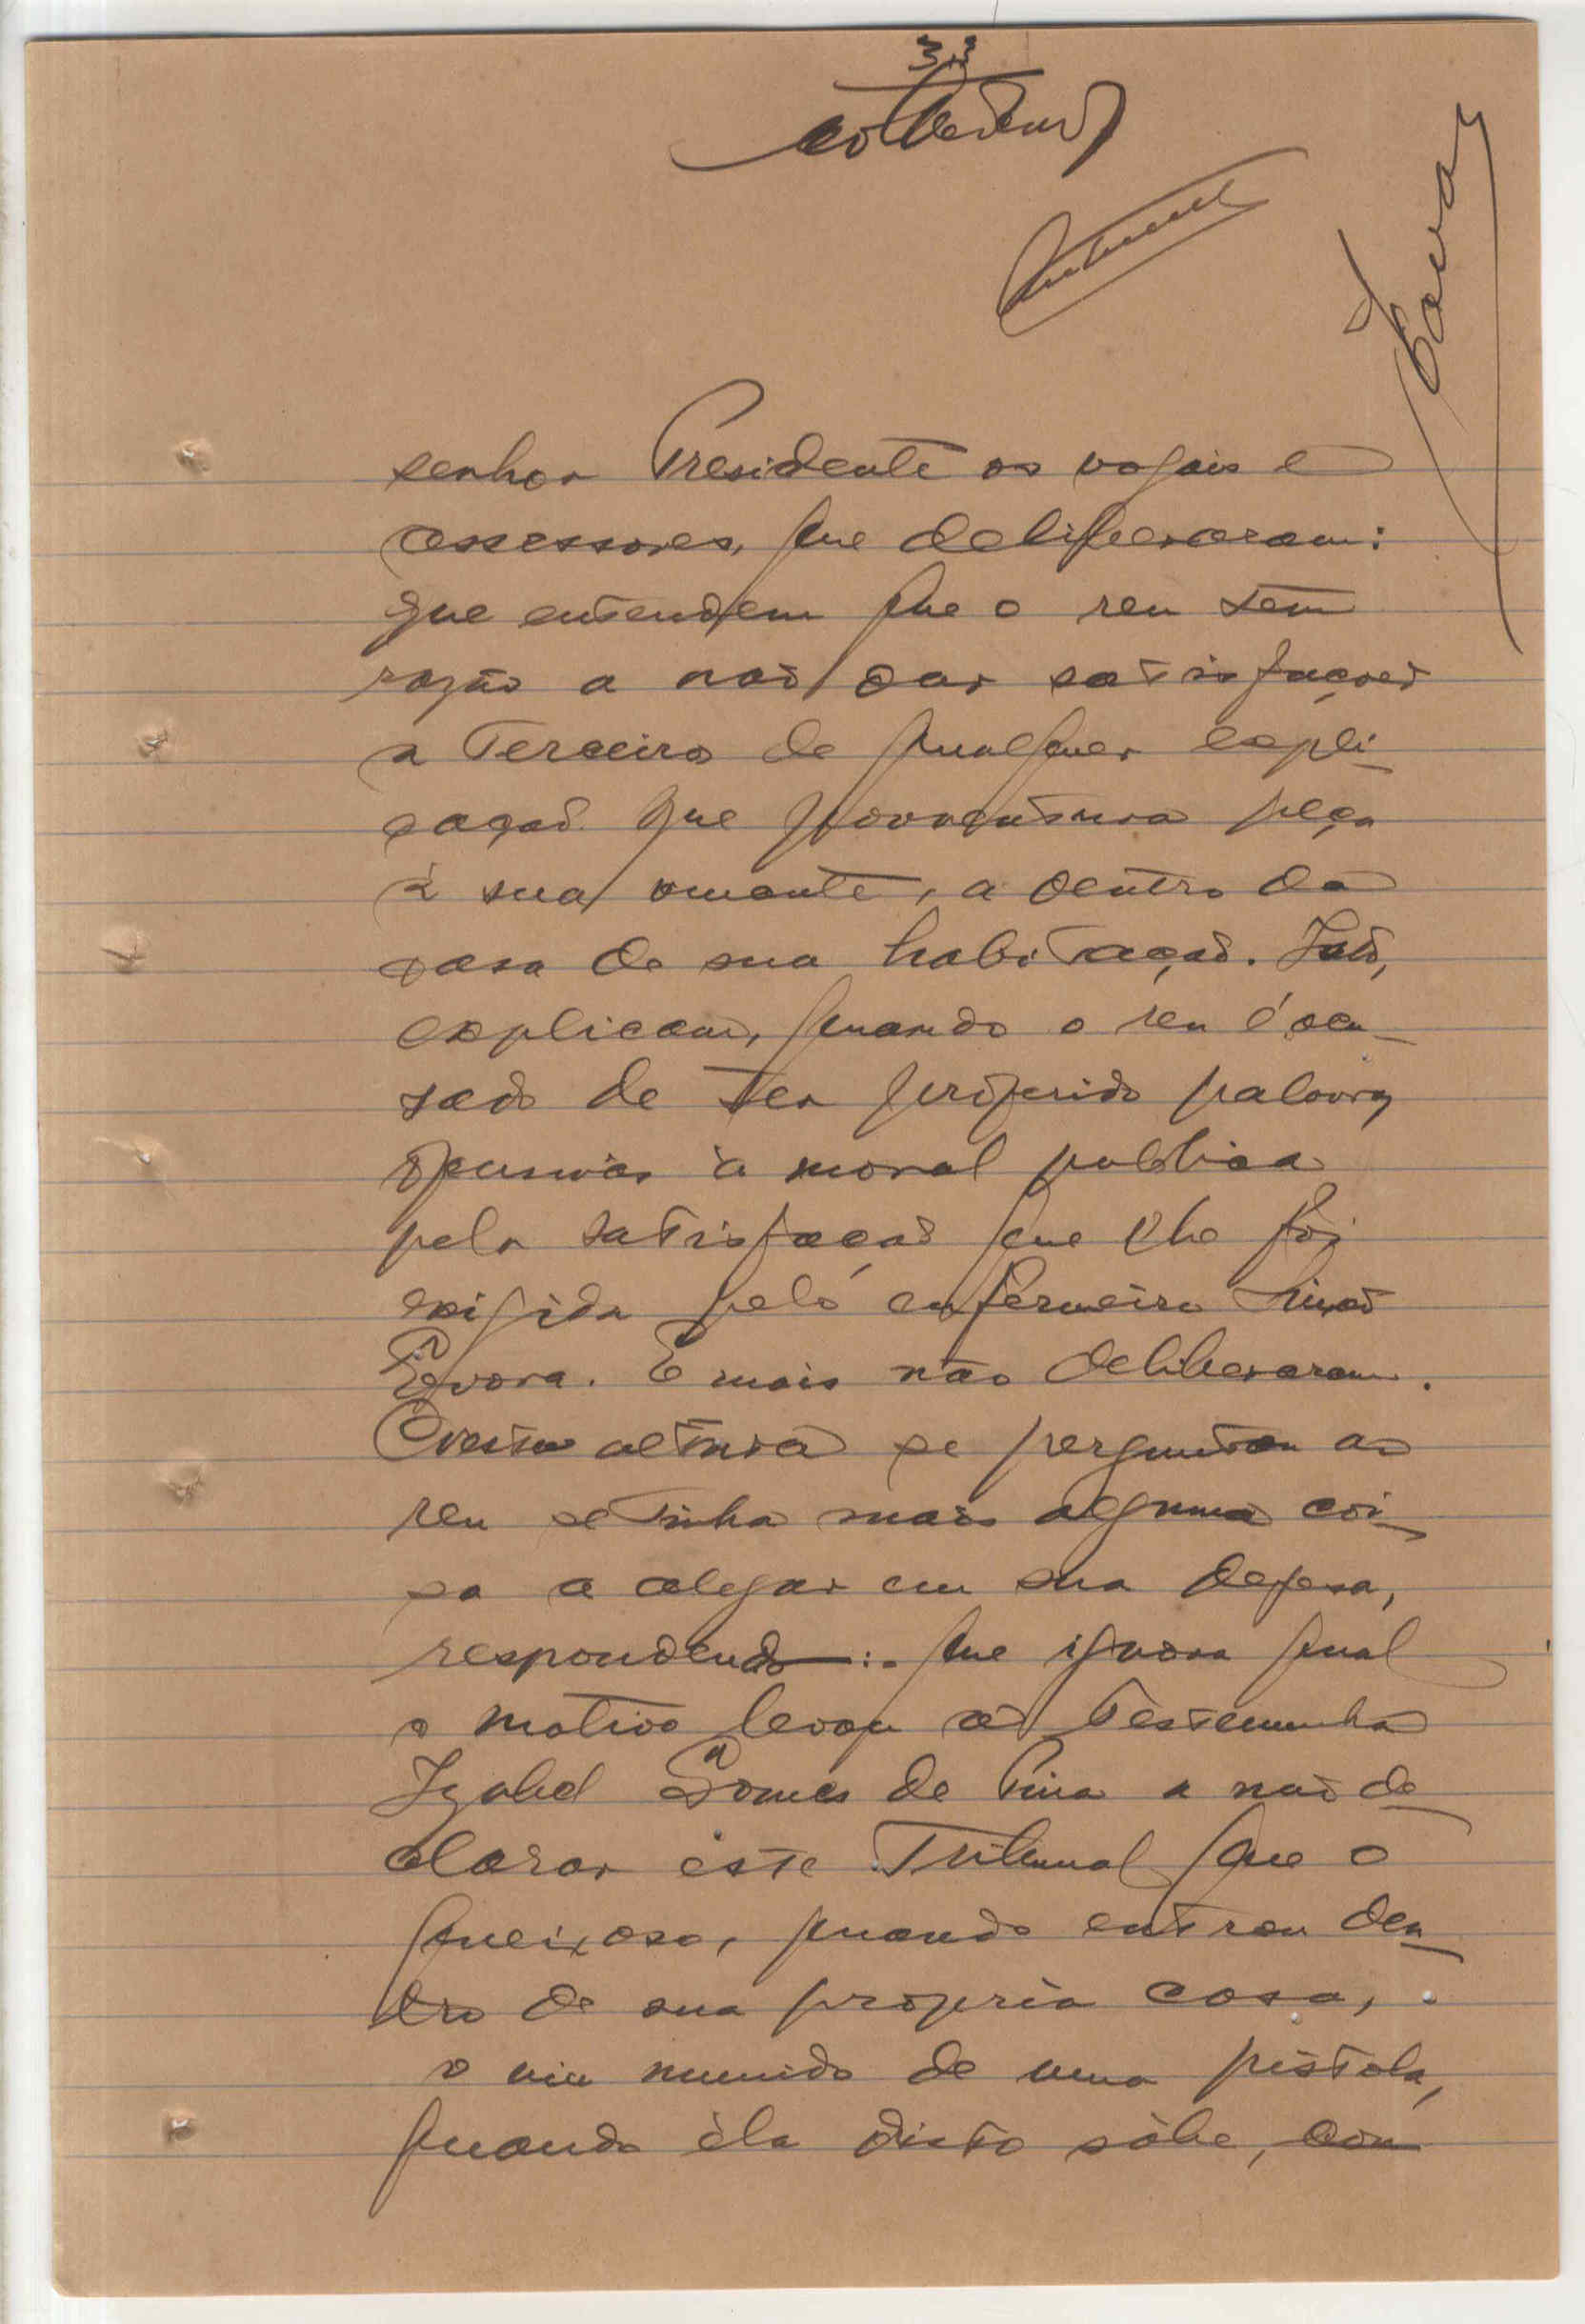 33
senhor Presidente os vogais e
assessores, que deliberaram:
que entendem que o reu tem
razão a não dar satisfações
a Terceiros de qualquer expli-
cação que porventura peça
à sua amante, a dentro da
casa de sua habitação. Isto,
explicam, quando o reu é acu-
sado de ter proferido palavras
ofensivas à moral publica
pela satisfação que lhe foi
exigida pelo enfermeiro Simão
Évora. E mais não deliberaram.
Nesta altura se perguntou ao
reu se tinha mais alguma coi-
sa a alegar em sua defesa,
respondendo:- que ignora qual
o motivo levou a testemunha
Izabel Gomes de Pina a não de-
clarar êste Tribunal que o
queixoso, quando entrou den-
tro de sua propria casa,
o viu munido de uma pistola,
quando éla disto sàbe, com